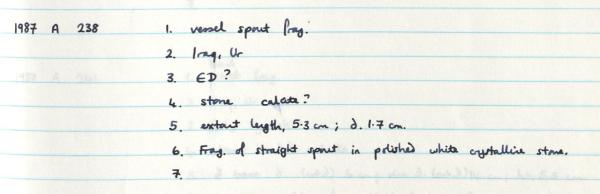 1987 A 238 1. vessel spout frag.
2. Iraq, Ur
3. ED?
4. stone calcite?
5. extant length, 5.3 cm; d. 1.7 cm.
6. Frag. of straight spout in polished white crystalline stone.
7.